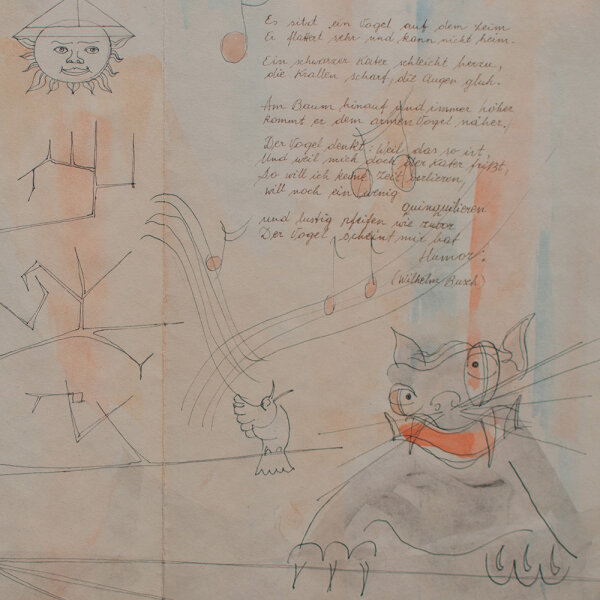 Es sitzt ein Vogel auf dem Leim
Er flattert sehr und kann nicht heim.
Ein schwarzer Kater schleicht herzu,
die Krallen scharf, die Augen gluh.
Am Baum hinauf und immer höher
kommt er dem armen Vogel näher.
Der Vogel denkt: Weil das so ist,
Und weil mich doch der Kater frißt,
So will ich keine Zeit verlieren,
will noch ein wenig
quinquilieren
und lustig pfeifen wie zuvor
Der Vogel, scheint mir hat
Humor.
(Wilhelm Busch)